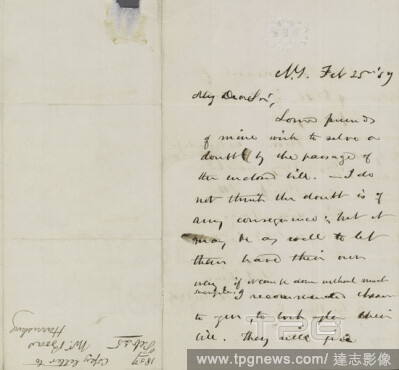 N.Y. Feb 25th 59
My Dear Sir,
Some friends
of mine wish to solve a
doubt by the passage of
the enclosed bill. — I do
not think the doubt is of
any consequence; but it
may be as well to let
them have their own
way, if it can be done without much
I recommended them
to you, to look after their
bill. They will give
Copy letter to
Mr
Harrisburg
Feb 25
www.tpgnews.com / 達志影像
TPG